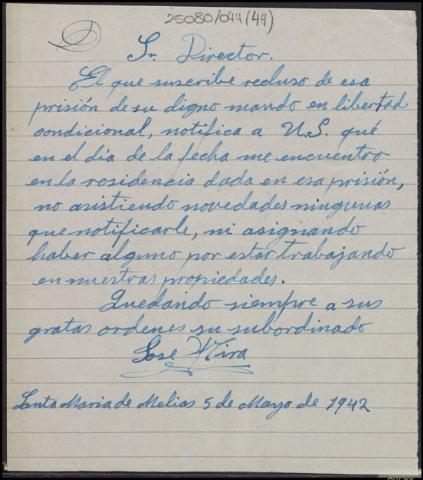 25080/044(44)
Sr. Director.
El que suscribe recluso de esa
prisión de su digno mando en libertad
condicional, notifica a U.S. qué
en el dia de la fecha me encuentro
en la residencia dada en esa prisión,
no asistiendo novedades ningunas
que notificarle, ni asignando
haber alguno por estar trabajando
en nuestras propiedades.
Quedando siempre a sus
gratas ordenes su subordinado
José Mira
Santa Maria de Melias 5 de Mayo de 1942